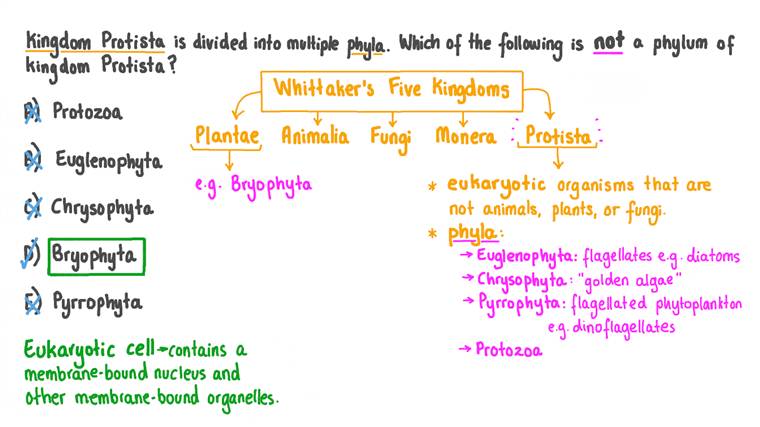 Kingdom Protista is divided into multiple phyla. Which of the following is not a phylum of
kingdom Protista?
Whittaker's Five Kingdoms
Plantae Animalia Fungi Monera Protista
e.g. Bryophyta
A) Protozoa
B) Euglenophyta
C) Chrysophyta
D) Bryophyta
E) Pyrrophyta
* eukaryotic organisms that are
not animals, plants, or fungi.
* phyla:
→ Euglenophyta: flagellates e.g. diatoms
→ Chrysophyta: "golden algae"
→ Pyrrophyta: flagellated phytoplankton
e.g. dinoflagellates
→ Protozoa
Eukaryotic cell→contains a
membrane-bound nucleus and
other membrane-bound organelles.